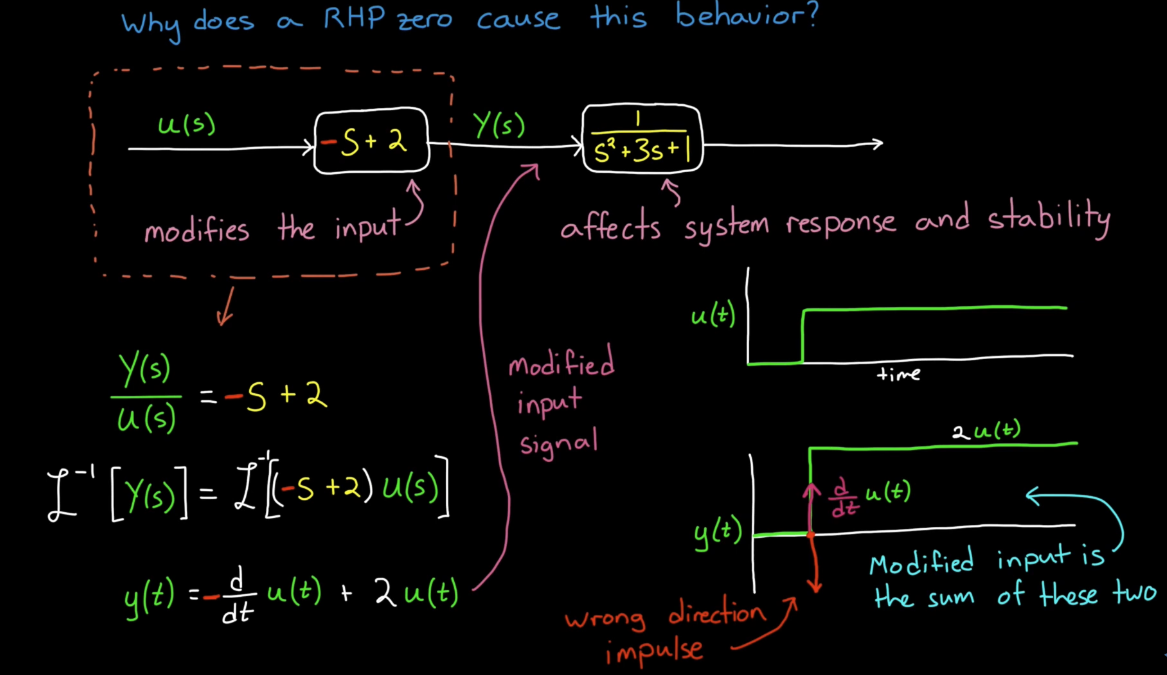 Why does a RHP zero cause this behavior?
u(s)
-S + 2
Y(s)
1
S² + 3s + 1
modifies the input
affects system response and stability
Y(s)
u(s)
= -S + 2
ℒ⁻¹ [Y(s)] = ℒ⁻¹[(-S + 2) u(s)]
y(t) = - d/dt u(t) + 2 u(t)
modified
input
signal
u(t)
time
2 u(t)
d/dt u(t)
y(t)
Modified input is
the sum of these two
wrong direction
impulse